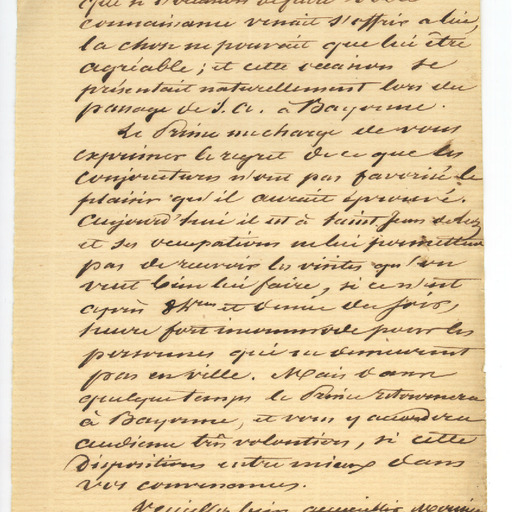 que si l'occasion de faire votre
connaissance venait s'offrir à lui,
la chose ne pourrait que lui être
agréable; et cette occasion se
présentait naturellement lors du
passage de S. A. à Bayonne.
Le Prince me charge de vous
exprimer le regret de ce que les
conjonctures n'ont pas favorisé le
plaisir qu'il aurait éprouvé.
Aujourd'hui il est à Saint Jean de Luz
et ses occupations ne lui permettent
pas de recevoir les visites qu'on
veut bien lui faire, si ce n'est
après 8 hres et demie du soir,
heure fort incommode pour les
personnes qui ne demeurent
pas en ville. Mais dans
quelque temps le Prince retournera
à Bayonne, et vous y accordera
audience très volontiers, si cette
disposition entre mieux dans
vos convenances.
Veuillez bien accueillir Monsieur